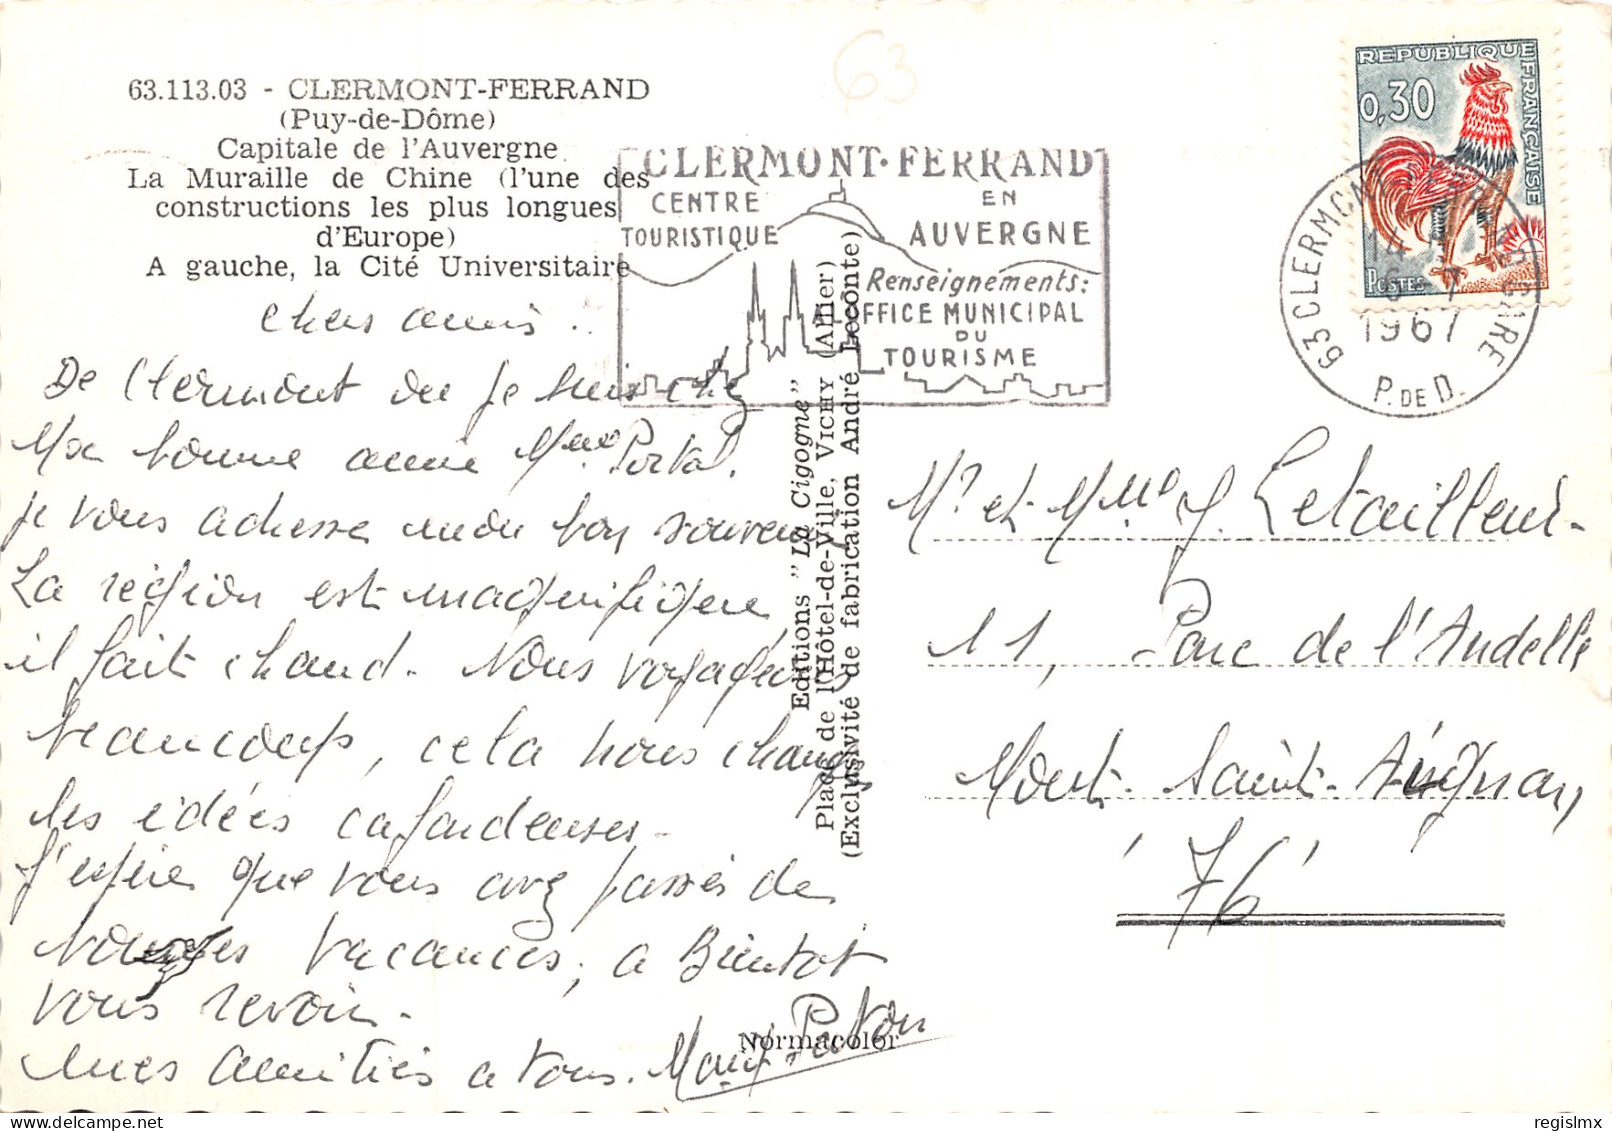 63.113.03 - CLERMONT-FERRAND
(Puy-de-Dôme)
Capitale de l'Auvergne
La Muraille de Chine (l'une des
constructions les plus longues
d'Europe)
A gauche, la Cité Universitaire
63
CLERMONT-FERRAND
CENTRE
TOURISTIQUE
EN
AUVERGNE
Renseignements:
OFFICE MUNICIPAL
DU
TOURISME
REPUBLIQUE FRANÇAISE
0,30
POSTES
63 CLERMONT-FERRAND GARE
14 H
6 - 7
1967
P. DE D.
Chers amis.
De Clermont ou je suis chez
Ma bonne amie Mme Portal.
je vous adresse mon bon souvenir
La région est magnifique
il fait chaud. Nous voyageons
beaucoup, cela nous change
les idées cafardeuses.
J'espère que vous avez passés de
bonnes vacances, a Bientot
vous revoir.
mes amitiés a vous.
Editions "La Cigogne"
Place de l'Hôtel-de-Ville, VICHY (Allier)
(Exclusivité de fabrication André Leconte)
Normacolor
Mr et Mme J. Letailleur.
11, Parc de l'Andelle
Mont-Saint-Aignan,
76
regislmx